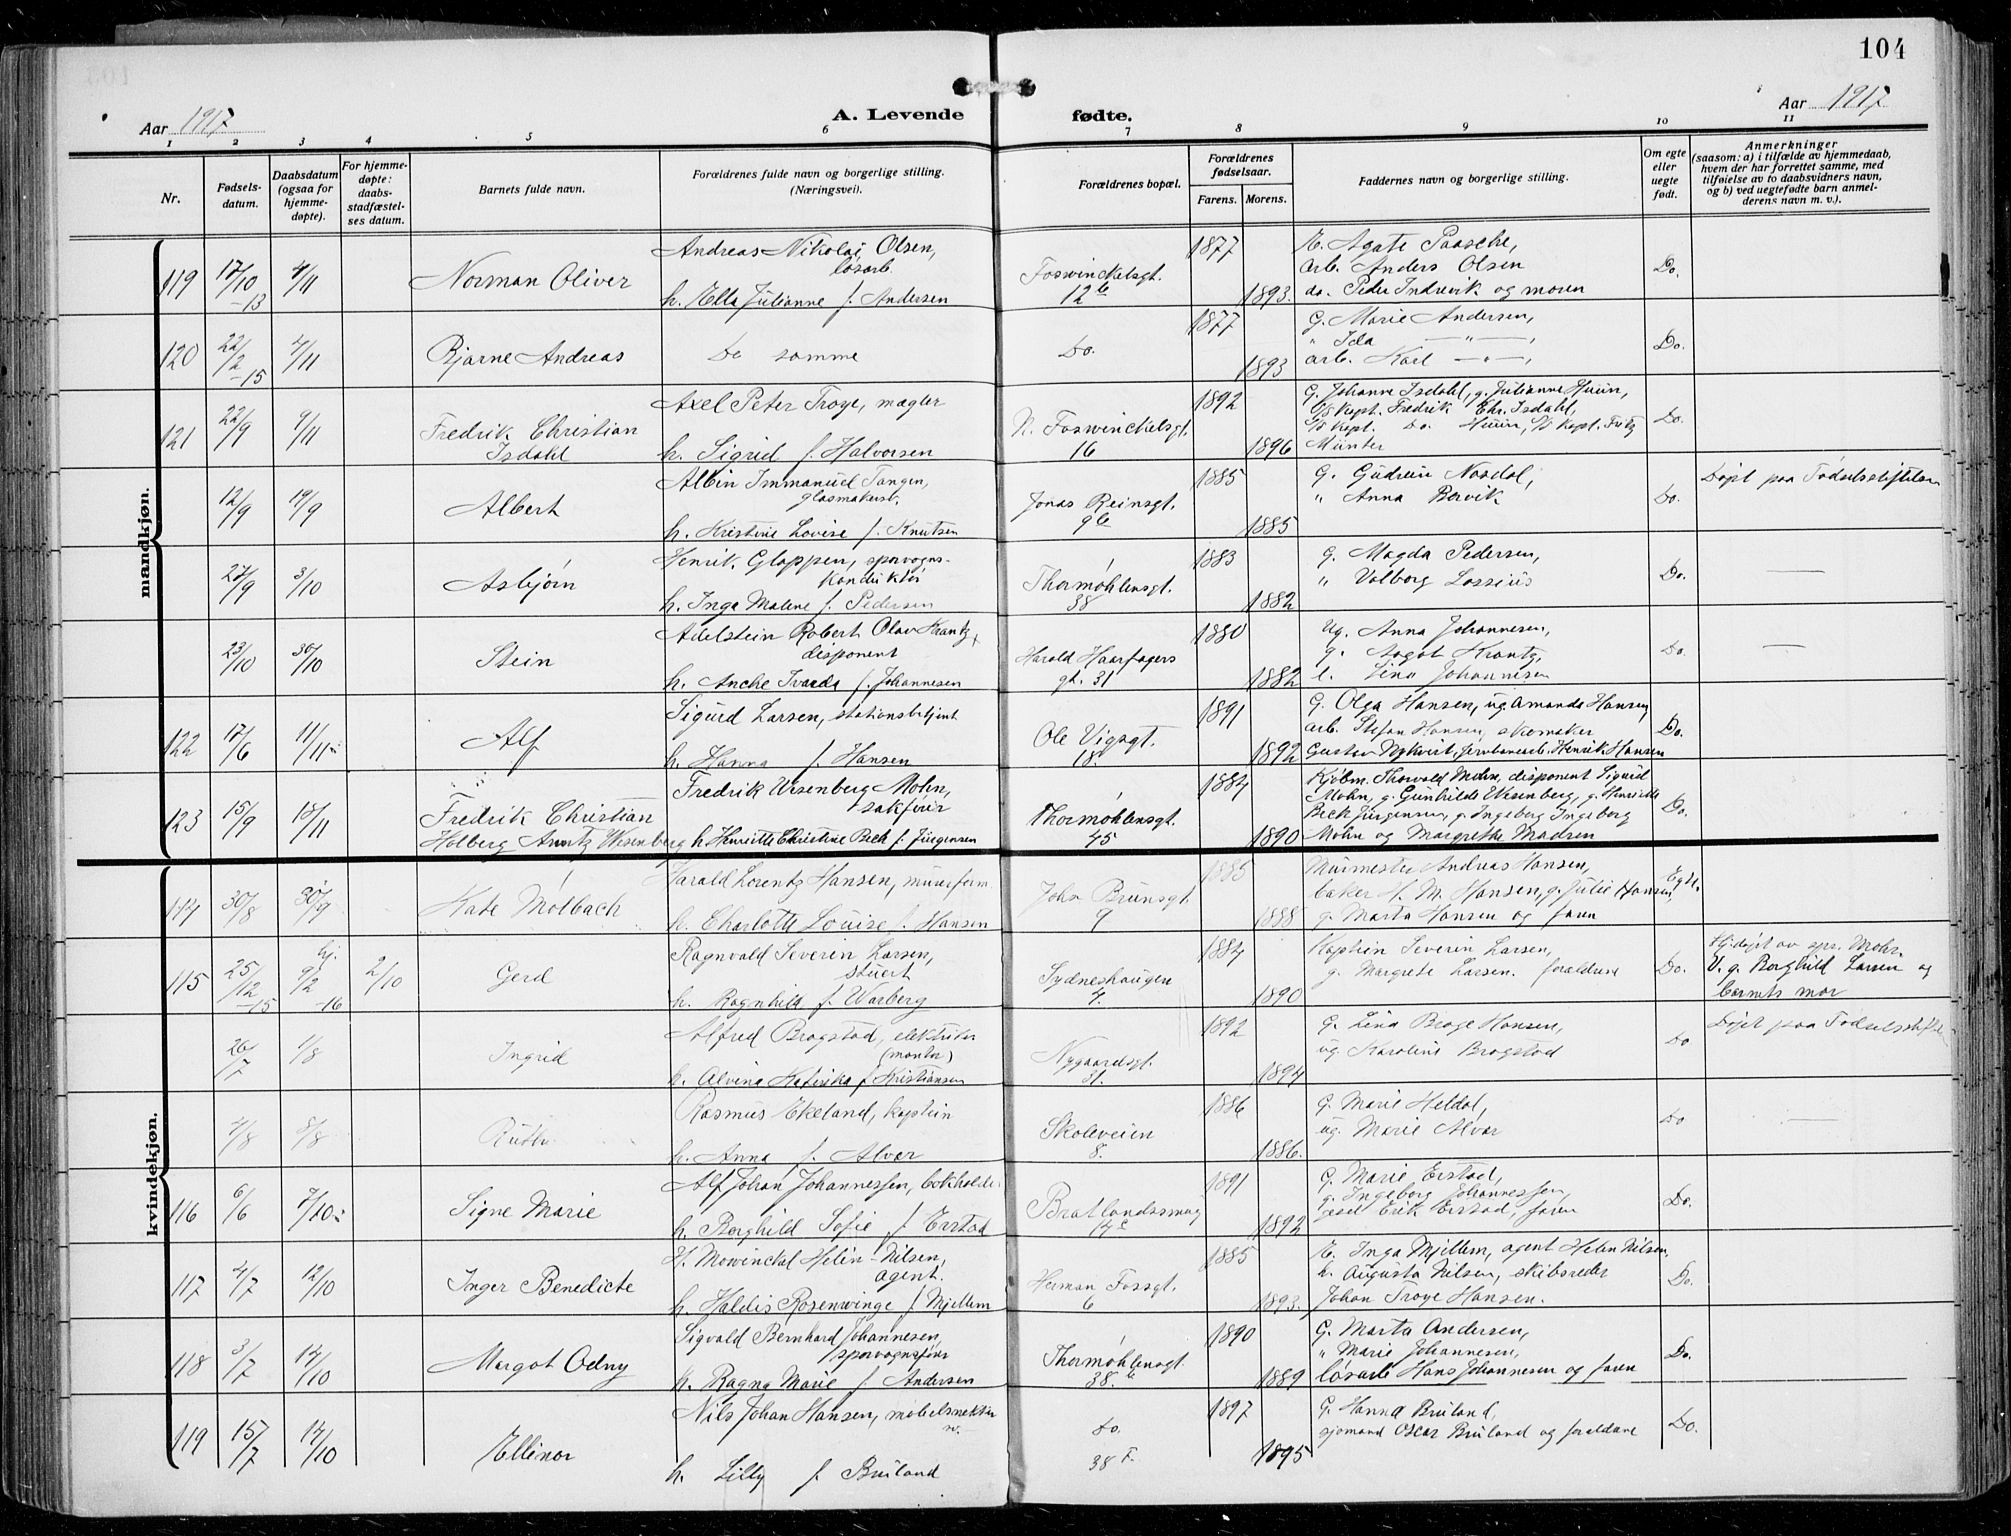 104
Aar 1917
A. Levende
fødte.
Aar 1917
1 2 3 4 5 6 7 8 9 10 11
Nr.
Fødsels-
datum.
Daabsdatum
(ogsaa for
hjemme-
døpte).
For hjemme-
døpte:
daabs-
stadfæstel-
ses datum.
Barnets fulde navn.
Forældrenes fulde navn og borgerlige stilling.
(Næringsvei).
Forældrenes bopæl.
Forældrenes
fødselsaar.
Farens. Morens.
Faddernes navn og borgerlige stilling.
Om egte
eller
uegte
født.
Anmerkninger
(saasom: a) i tilfælde av hjemmedaab,
hvem der har forrettet samme, med
tilføielse av to daabsvidners navn,
og b) ved uegtefødte barn anmel-
derens navn m. v.).
mandkjøn.
119 17/10 -13 4/11 Norman Oliver
Andreas Nikolai Olsen,
løsarb.
h. Ella Julianne f. Andersen
Foswinckelsgt.
12 b
1877 1893.
E. Agate Paasche,
arb. Anders Olsen
do. Peder Indrevik og moren
Do.
120 22/2 -15 4/11 Bjarne Andreas
De samme
Do.
1877 1893
G. Marie Andersen,
" Ida — " —,
arb. Karl — " —,
Do.
121 22/9 9/11 Fredrik Christian
Isdahl
Axel Peter Troye, mægler
h. Sigrid f. Halvorsen
N. Foswinckelsgt.
16
1892 1896
G. Johanne Isdahl, g. Julianne Huun,
S/S kapt. Fredrik Chr. Isdahl,
S/S kapt. Do Huun, S/S kapt. Fritz
Münter
Do.
12/9 19/9 Albert
Albin Immanuel Tangen,
glasmakerst.
h. Kristine Lovise f. Knutsen
Jonas Reinsgt.
9 b
1885 1885
G. Gudrun Nosdal,
" Anna Bervik
Do.
Døpt paa Fødselsstiftelsen
27/9 3/10 Asbjørn
Henrik Gloppen, sporvogns-
konduktør
h. Inga Malene f. Pedersen
Thormøhlensgt.
38
1883 1882
G. Magda Pedersen,
" Valborg Lossius
Do. —
23/10 30/10 Stein
Adelstein Robert Olav Krantz,
disponent
h. Anche Ivarda f. Johannesen
Harald Haarfagers
gt. 31
1880 1882
Ug. Anna Johannesen,
g. Aagot Krantz,
e. Lina Johannesen
Do. —
122 17/6 11/11 Alf
Sigurd Larsen, stationsbetjent
h. Hanna f. Hansen
Ole Vigsgt.
18
1891 1892
G. Olga Hansen, ug. Amanda Hansen,
arb. Stefan Hansen, skomaker
Gustav Nykvist, jernbanearb. Henrik Hansen
Do.
123 15/9 18/11 Fredrik Christian
Holberg Arentz Wesenberg
Fredrik Wesenberg Mohn,
sakfører
h. Henriette Christine Bech f. Jürgensen
Thormøhlensgt.
45
1884 1890
Kjøbm. Thorvald Mohn, disponent Sigurd
Mohn, g. Gunhilde Wesenberg, g. Henriette
Bech Jürgensen, g. Ingeborg Ingeborg
Mohn og Margrethe Madsen
Do.
kvindekjøn.
114 30/8 30/9 Kate Mölbach
Harald Lorentz Hansen, murerform.
h. Charlotte Louise f. Hansen
John Brunsgt.
9
1885 1888
Murmester Andreas Hansen,
baker H. M. Hansen, g. Julie Hansen,
g. Marta Hansen og faren
Egte.
115 25/12 -15 hj. 9/2 -16 2/10 Gerd
Ragnvald Severin Larsen,
stuert
h. Ragnhild f. Warberg
Sydneshaugen
4.
1884 1890
Kaptein Severin Larsen,
g. Margrete Larsen. forældrene
Do.
Hj.døpt av spr. Mohr.
V. g. Borghild Larsen og
barnets mor
26/7 1/8 Ingrid
Alfred Brogstad, elektriker
(montør)
h. Alvina Katinka f. Kristiansen
Nygaardsgt.
31.
1892 1894
G. Lina Brage Hansen,
ug. Karoline Brogstad
Do
Døpt paa Fødselsstifte
4/8 8/8 Ruth
Rasmus Ekeland, kaptein
h. Anna f. Alvær
Skoleveien
8.
1886 1886.
G. Marie Heldal,
ug. Marie Alvær
Do —
116 6/6 7/10 Signe Marie
Alf Johan Johannessen, bokholder
h. Borghild Sofie f. Erstad
Bratlandssmug
14 c
1891 1892
G. Marie Erstad,
g. Ingeborg Johannessen,
gesel Erik Erstad, faren
Do.
117 4/7 12/10 Inger Benedicte
H. Mowinckel Helén-Nilsen,
agent.
h. Haldis Rosenwinge f. Mjellem
Herman Fossgt.
6
1885 1893.
E. Inga Mjellem, agent Helén Nilsen
h. Augusta Nilsen, skibsreder
Johan Troye Hansen.
Do.
118 3/7 14/10 Margot Odny
Sigvald Bernhard Johannesen,
sporvognsfører
h. Ragna Marie f. Andersen
Thormøhlensgt.
38. b
1890 1889
G. Marta Andersen,
" Marie Johannesen,
løsarb. Hans Johannesen og faren
Do.
119 15/7 14/10 Ellinor
Nils Johan Hansen, møbelsnekker
h. Lilly f. Bruland
do.
38 F.
1897 1895
G. Hanna Bruland,
sjømand Oscar Bruland og forældrene
Do.